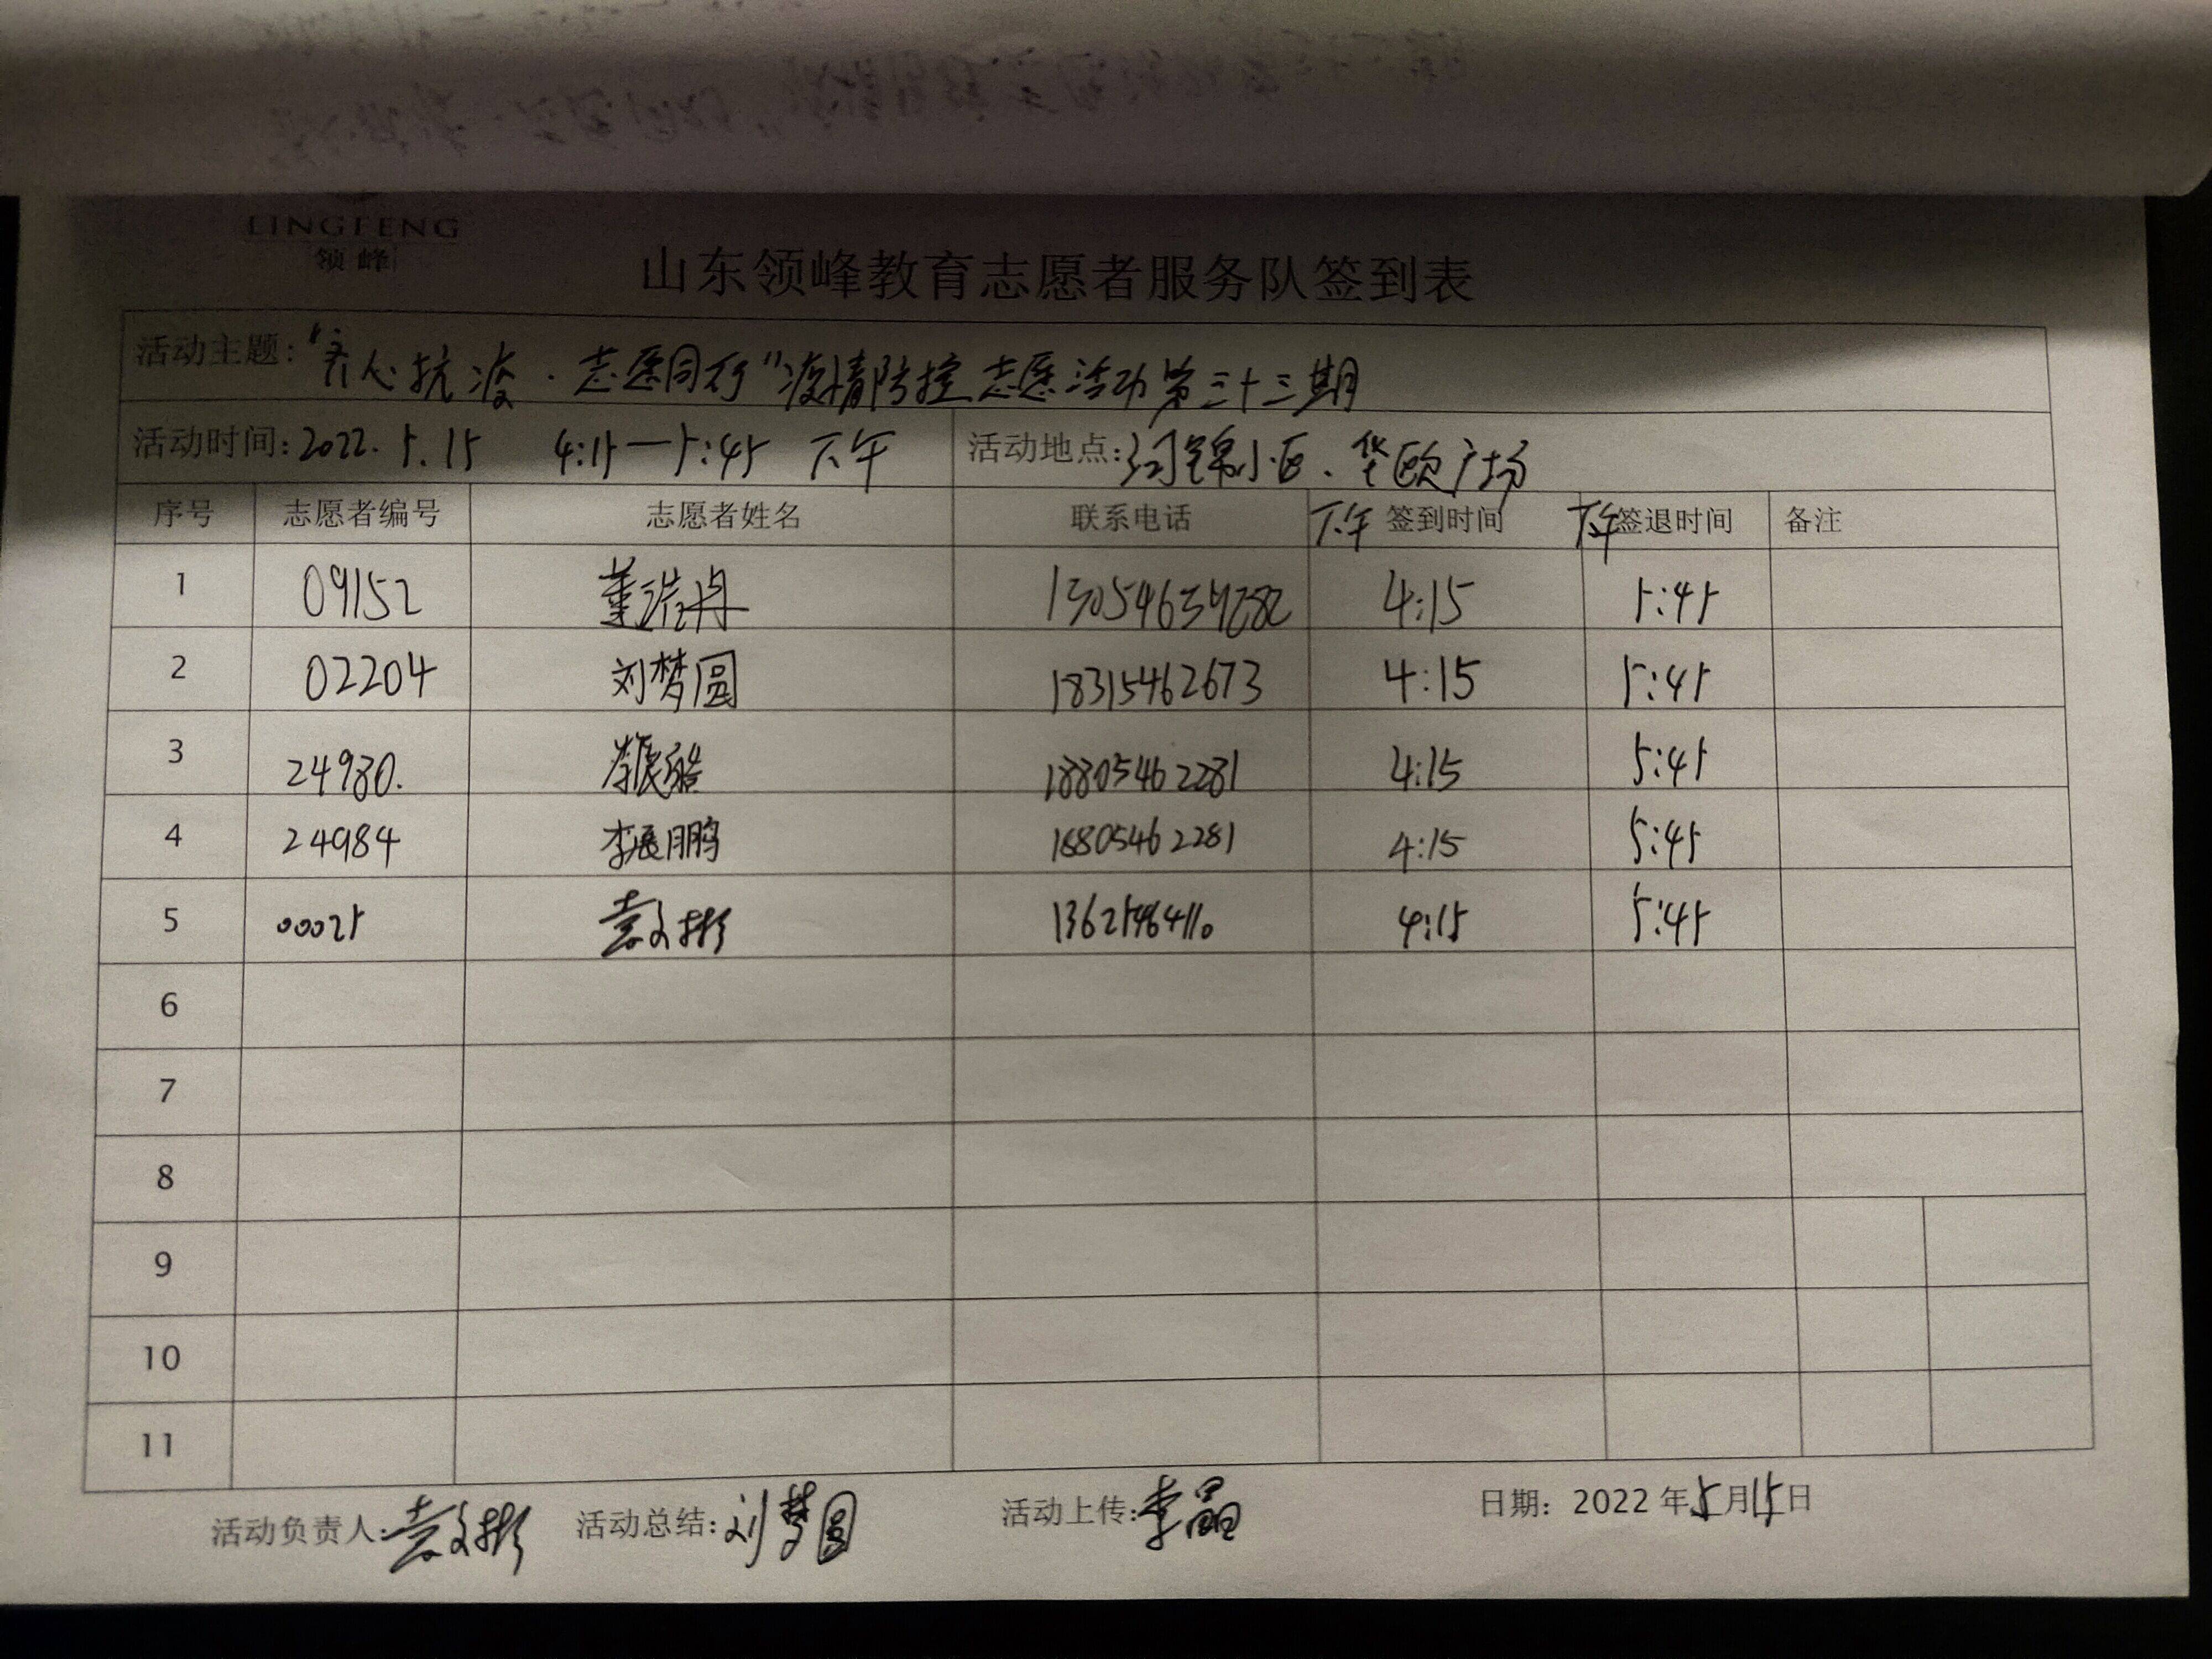 LINGFENG
领峰
山东领峰教育志愿者服务队签到表
活动主题："齐心抗疫·志愿同行"疫情防控志愿活动第三十三期
活动时间：2022.5.15 4:15—5:45 下午 活动地点：河锦小区、华欧广场
序号 志愿者编号 志愿者姓名 联系电话 下午 签到时间 下午 签退时间 备注
1 09152 董浩冉 4:15 5:45
2 02204 刘梦圆 18315462673 4:15 5:45
3 24980. 18805462281 4:15 5:45
4 24984 李展鹏 18805462281 4:15 5:45
5 00025 袁文彬 13625464110 4:15 5:45
6
7
8
9
10
11
活动负责人：袁文彬 活动总结：刘梦圆 活动上传：李晶 日期：2022年5月15日